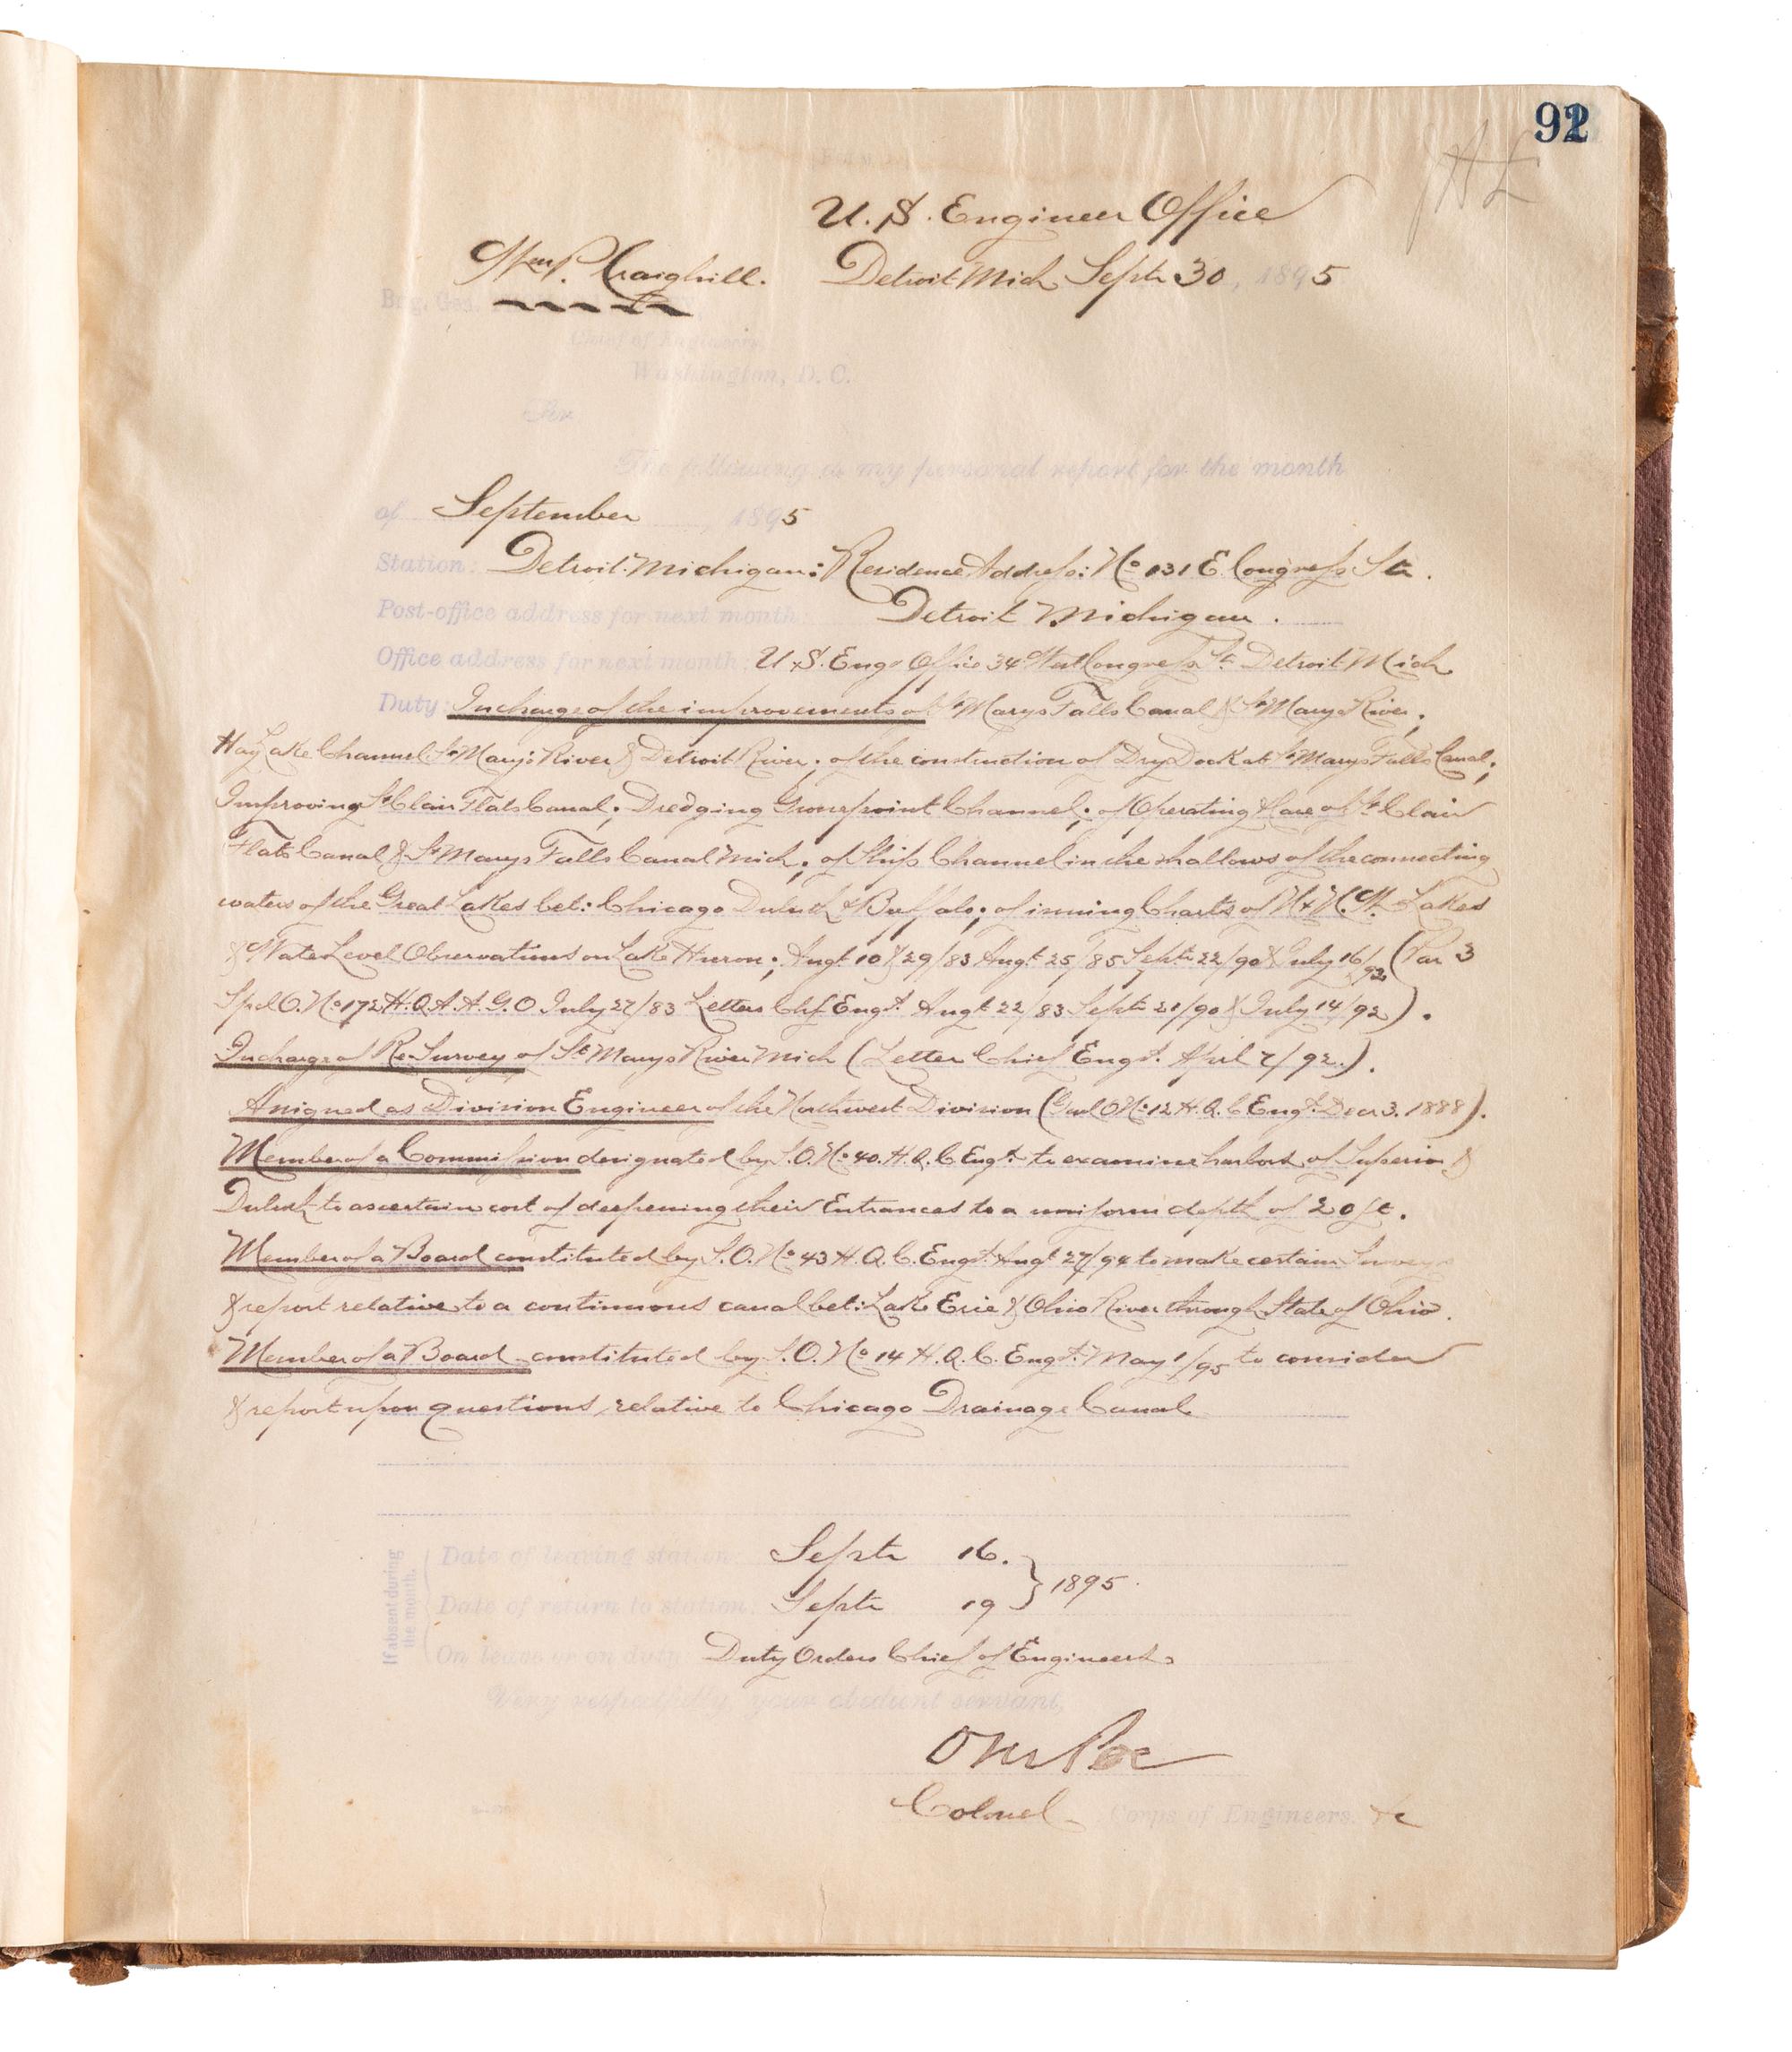 92
U.S. Engineer Office
Wm P. Craighill. Detroit Mich Septr 30, 1895
Brig. Gen.
Chief of Engineers,
Washington, D. C.
Sir
The following is my personal report for the month
of September, 1895
Station: Detroit Michigan: Residence Address: No 131 E. Congress St.
Post-office address for next month: Detroit Michigan.
Office address for next month: U.S. Engr Office 34 West Congress St Detroit Mich
Duty: In charge of the improvements of St Marys Falls Canal & St Marys River;
Hay Lake Channel St Marys River & Detroit River; of the construction of Dry Dock at St Marys Falls Canal;
Improving St Clair Flats Canal; Dredging Grossepoint Channel; of Operating & care of St Clair
Flats Canal & St Marys Falls Canal Mich; of Ship Channel in the shallows of the connecting
waters of the Great Lakes bet: Chicago Duluth & Buffalo; of issuing Charts of N & N.W. Lakes
& Water Level Observations on Lake Huron; Augt 10 & 29/83 Augt 25/85 Septr 22/90 & July 16/92 (Par 3
Spcl O. No 172 H.Q.A. A.G.O July 27/83 Letters Chf Engrs. Augt 22/83 Septr 21/90 & July 14/92).
In charge of Re-Survey of St Marys River Mich (Letter Chief Engrs. April 7/92.).
Assigned as Division Engineer of the Northwest Division (Genl O No 12 H.Q. C Engrs. Decr 3. 1888).
Member of a Commission designated by S.O. No 40. H.Q. C Engrs. to examine harbors of Superior &
Duluth to ascertain cost of deepening their Entrances to a uniform depth of 20 ft.
Member of a Board constituted by S.O. No 43 H.Q. C. Engrs. Augt 27/94 to make certain Surveys
& report relative to a continuous canal bet: Lake Erie & Ohio River through State of Ohio.
Member of a Board constituted by S.O. No 14 H.Q. C. Engrs. May 1/95 to consider
& report upon questions relative to Chicago Drainage Canal
If absent during the month.
Date of leaving station: Septr 16. } 1895.
Date of return to station: Septr 19
On leave or on duty: Duty Orders Chief of Engineers.
Very respectfully, your obedient servant,
O M Poe
Colonel Corps of Engineers. &c